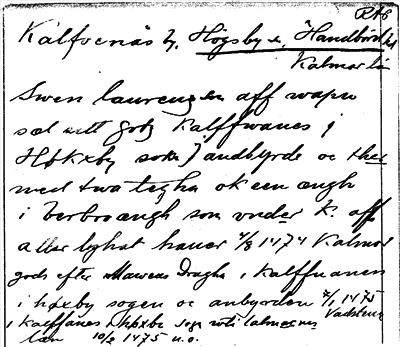 RAÖ
Kalfvenäs by, Högsby s., Handbörds
Kalmar län
Swen laurenzson aff wapn
sæl sitt godz Kalffwanes j
Høkxby sokn j andbyrde oc ther
med twa tegha ok een ængh
i Verbroængh som vnder K. aff
aller lyghat hauer 4/8 1474 Kalmar
gods efter Mawens Dragha i kalffuanes
i høxby sogen oc anbyrden 7/1 1475 Vadstena
i kalffanes i høxbe sogn
län 10/2 1475 u.o.